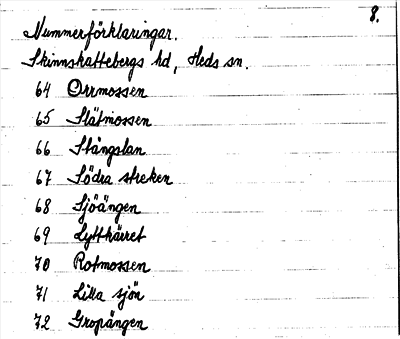 8.
Nummerförklaringar.
Skinnskattebergs hd, Heds sn.
64 Orrmossen
65 Slätmossen
66 Stångslan
67 Södra streken
68 Sjöängen
69 Lyttkärret
70 Rotmossen
71 Lilla sjön
72 Gropängen